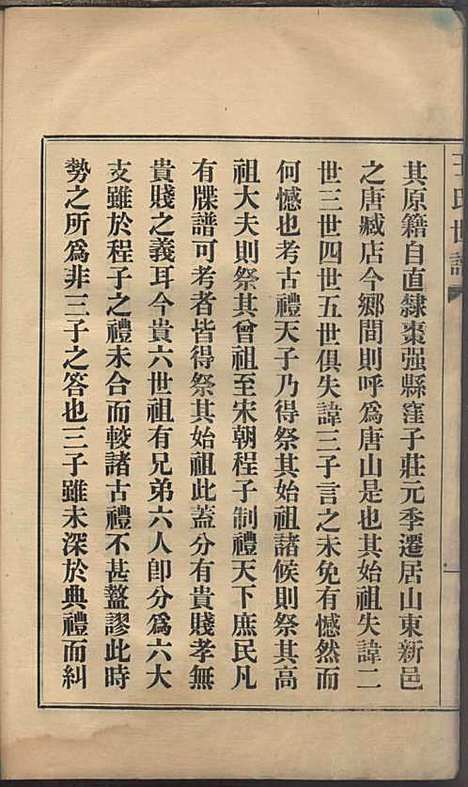 王氏世譜
其原籍自直隸棗强縣窪子莊元季遷居山東新邑
之唐臧店今鄉間則呼爲唐山是也其始祖失諱二
世三世四世五世俱失諱三子言之未免有憾然而
何憾也考古禮天子乃得祭其始祖諸候則祭其高
祖大夫則祭其曾祖至宋朝程子制禮天下庶民凡
有牒譜可考者皆得祭其始祖此蓋分有貴賤孝無
貴賤之義耳今貴六世祖有兄弟六人卽分爲六大
支雖於程子之禮未合而較諸古禮不甚盩謬此時
勢之所爲非三子之答也三子雖未深於典禮而糾